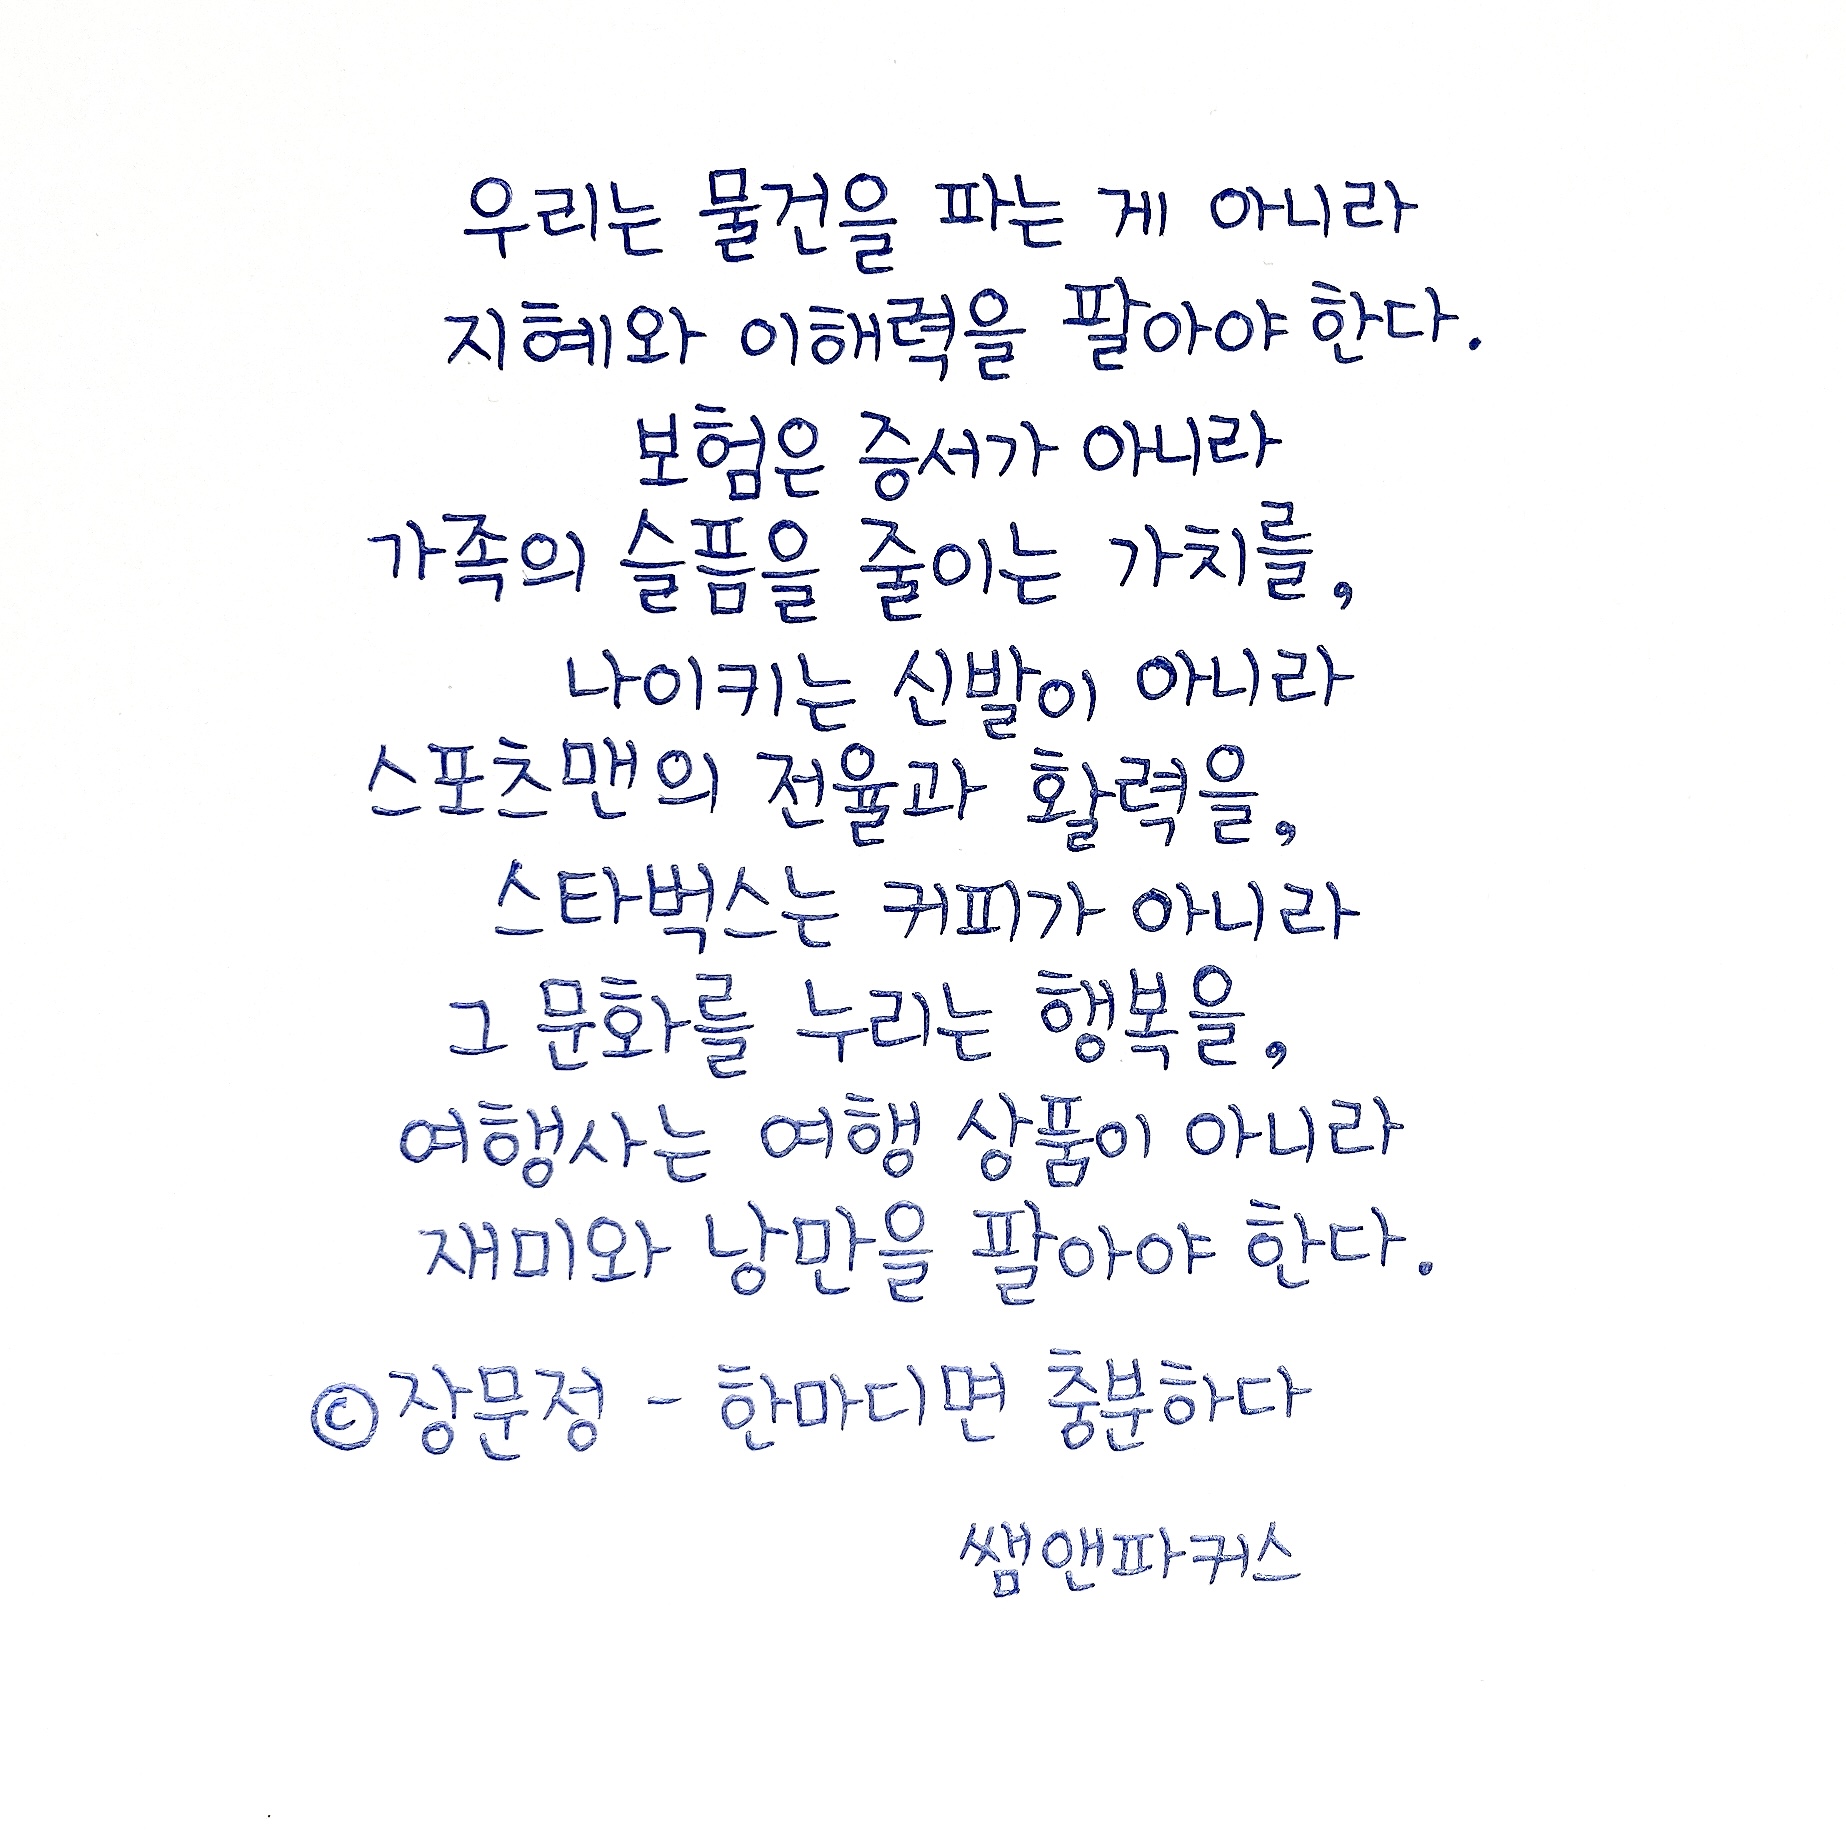 우리는 물건을 파는 게 아니라
지혜와 이해력을 팔아야 한다.
보험은 증서가 아니라
가족의 슬픔을 줄이는 가치를,
나이키는 신발이 아니라
스포츠맨의 전율과 활력을,
스타벅스는 커피가 아니라
그 문화를 누리는 행복을,
여행사는 여행 상품이 아니라
재미와 낭만을 팔아야 한다.
©장문정 - 한마디면 충분하다
쌤앤파커스